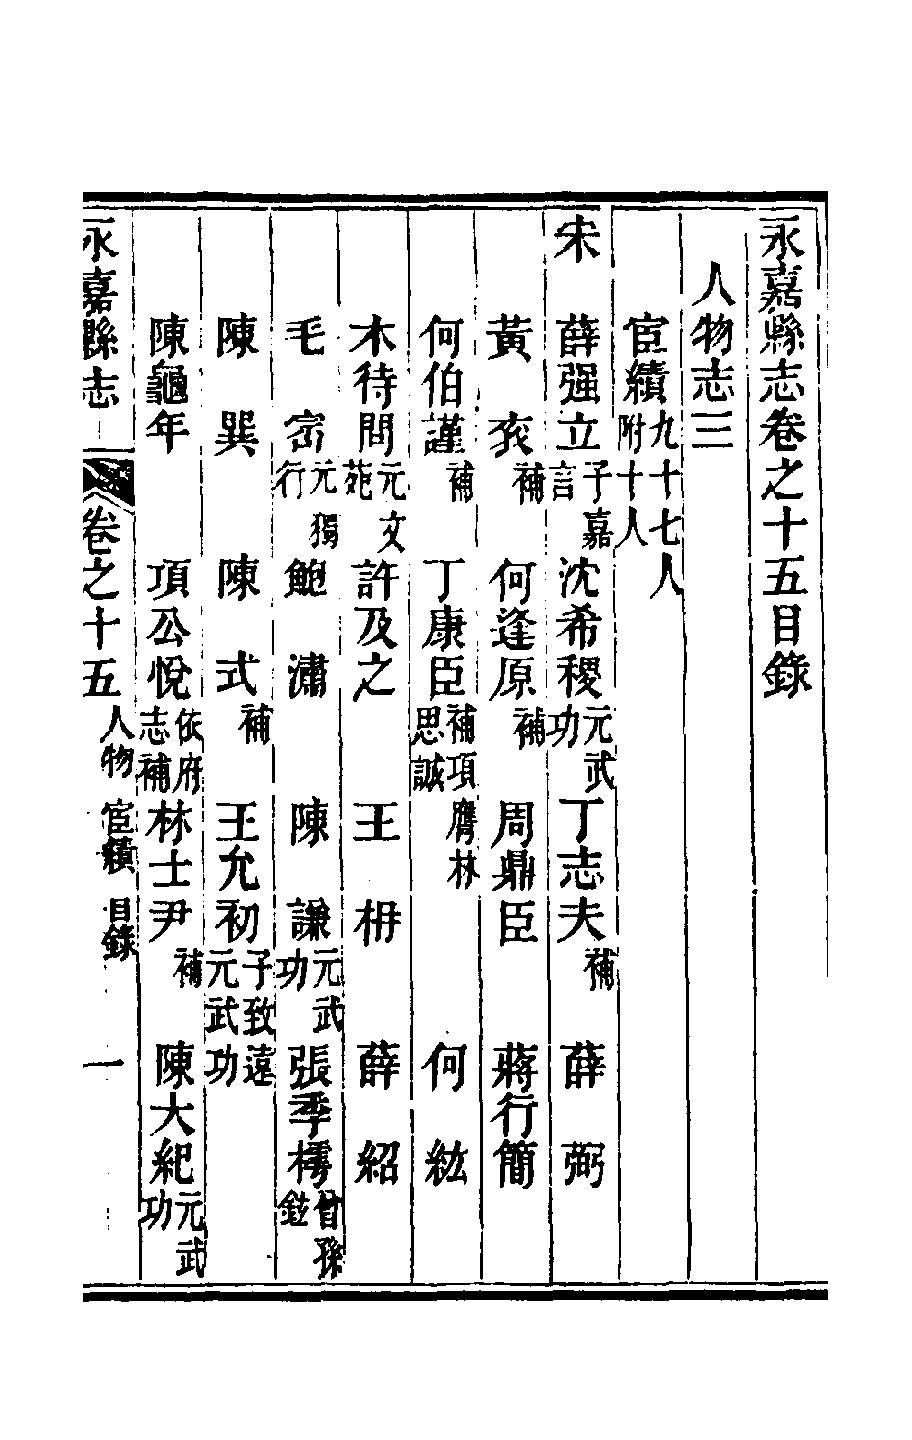 永嘉縣志卷之十五目錄
人物志三
宦績九十七人附十人
宋 薛强立子嘉言 沈希稷元武功 丁志夫補 薛弼
黃𧙍補 何逢原補 周鼎臣 蔣行簡
何伯謹補 丁康臣補項膺林思誠 何紘
木待問元文苑 許及之 王枏 薛紹
毛密元獨行 鮑潚 陳謙元武功 張季樗曾孫鉉
陳巽 陳式補 王允初子致遠元武功
陳龜年 項公悅依府志補 林士尹補 陳大紀元武功
永嘉縣志 卷之十五 人物 宦績 目錄 一